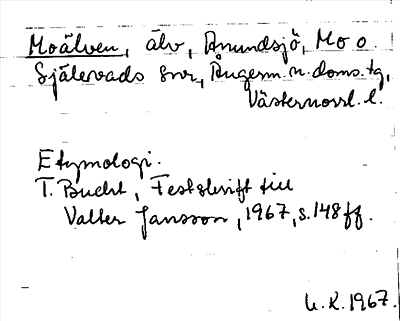 Moälven, älv, Anundsjö, Mo o.
Själevads snr, Ångerm. n. doms. tg,
Västernorrl. l.
Etymologi.
T. Bucht, Festskrift till
Valter Jansson, 1967, s. 148 ff.
U. K. 1967.